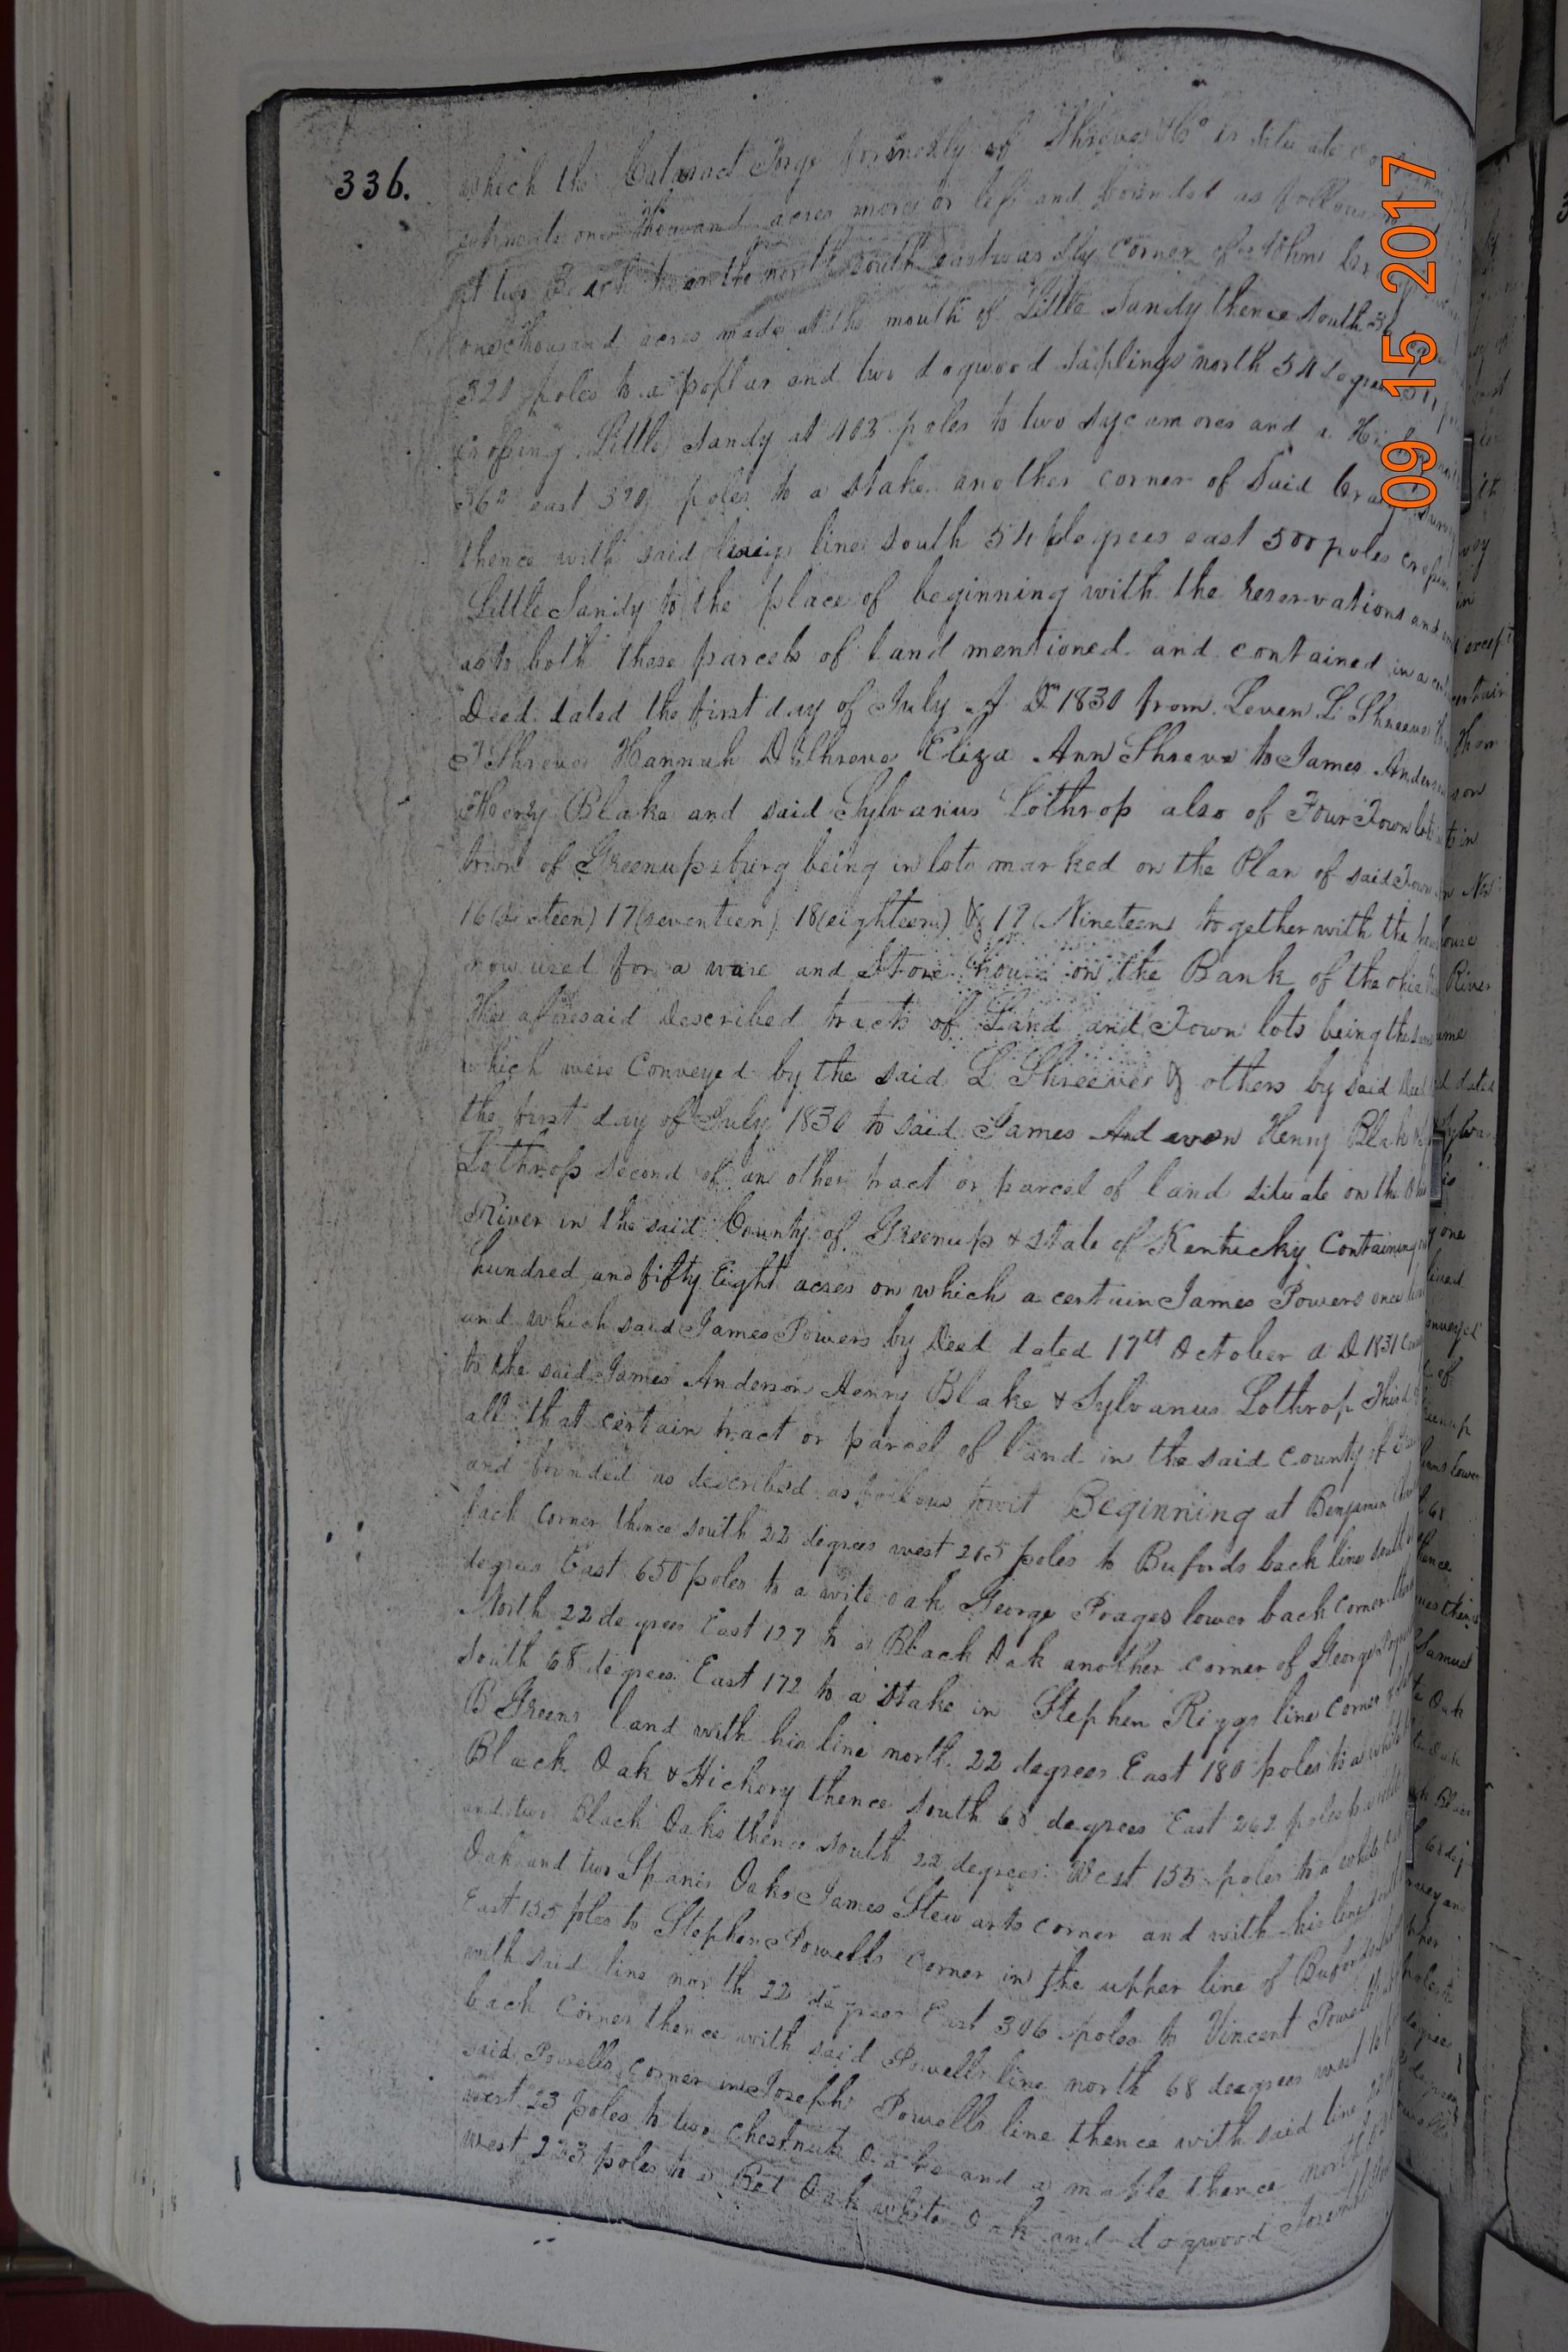 336.
which the Cataract Forge formerly of Shreves & Co is situate
one thousand acres more or less and bounded as follows
at two Beech on the north south eastwardly corner of John
one thousand acres made at the mouth of Little Sandy thence south 36
320 poles to a poplar and two dogwood saplings north 54 degrees
crossing Little Sandy at 403 poles to two sycamores and a
36° east 320 poles to a stake another corner of said
thence with said line south 54 degrees east 500 poles
Little Sandy to the place of beginning with the reservations and except
as to both those parcels of land mentioned and contained in a certain
Deed dated the first day of July A Dm 1830 from Leven L Shreeve Thom
T Shreve Hannah D Shreve Eliza Ann Shreve to James Anderson
Henry Blake and said Sylvanus Lothrop also of Four Town lots in
town of Greenupsburg being in lots marked on the Plan of said Town Nos
16 (sixteen) 17 (seventeen) 18 (eighteen) & 19 (Nineteen together with the house
now used for a ware and Store house on the Bank of the ohio River
The aforesaid described tracts of Land and Town lots being the same
which were conveyed by the said L Shreeves & others by said Deed dated
the first day of July 1830 to said James Anderson Henry Blake & Sylva
Lothrop second of an other tract or parcel of land situate on the Ohio
River in the said County of Greenup & state of Kentucky Containing one
hundred and fifty Eight acres on which a certain James Powers once lived
and which said James Powers by Deed dated 17th October A D 1831 conveyed
to the said James Anderson Henry Blake & Sylvanus Lothrop Third of
all that certain tract or parcel of land in the said county of Greenup
and bounded as described as follows towit Beginning at Benjamin lower
back corner thence south 22 degrees west 215 poles to Bufords back line south 68
degrees East 650 poles to a wite oak George Poages lower back corner thence
North 22 degrees East 127 to a Black Oak another corner of George Poages thence
south 68 degrees East 172 to a stake in Stephen Riggs line corner Samuel
B Greens land with his line north 22 degrees East 180 poles to a white Oak
Black Oak & Hickory thence south 68 degrees East 262 poles
and two Black Oaks thence south 22 degrees West 155 poles to a white
Oak and two Spanis Oaks James Stewarts corner and with his line south 68 deg
East 155 ploes to Stephen Powells corner in the upper line of Bufords
with said line north 22 degrees East 306 poles to Vincent Powells
back corner thence with said Powells line north 68 degrees west
said Powells corner in Joseph Powells line thence with said line
west 23 poles to two chestnut Oaks and a maple thence north
west 233 poles to a Red Oak white Oak and dogwood
09 15 2017